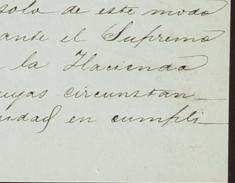 solo de este modo
ante el Supremo
la Hacienda
uyas circunstan_
uidad en cumpli_